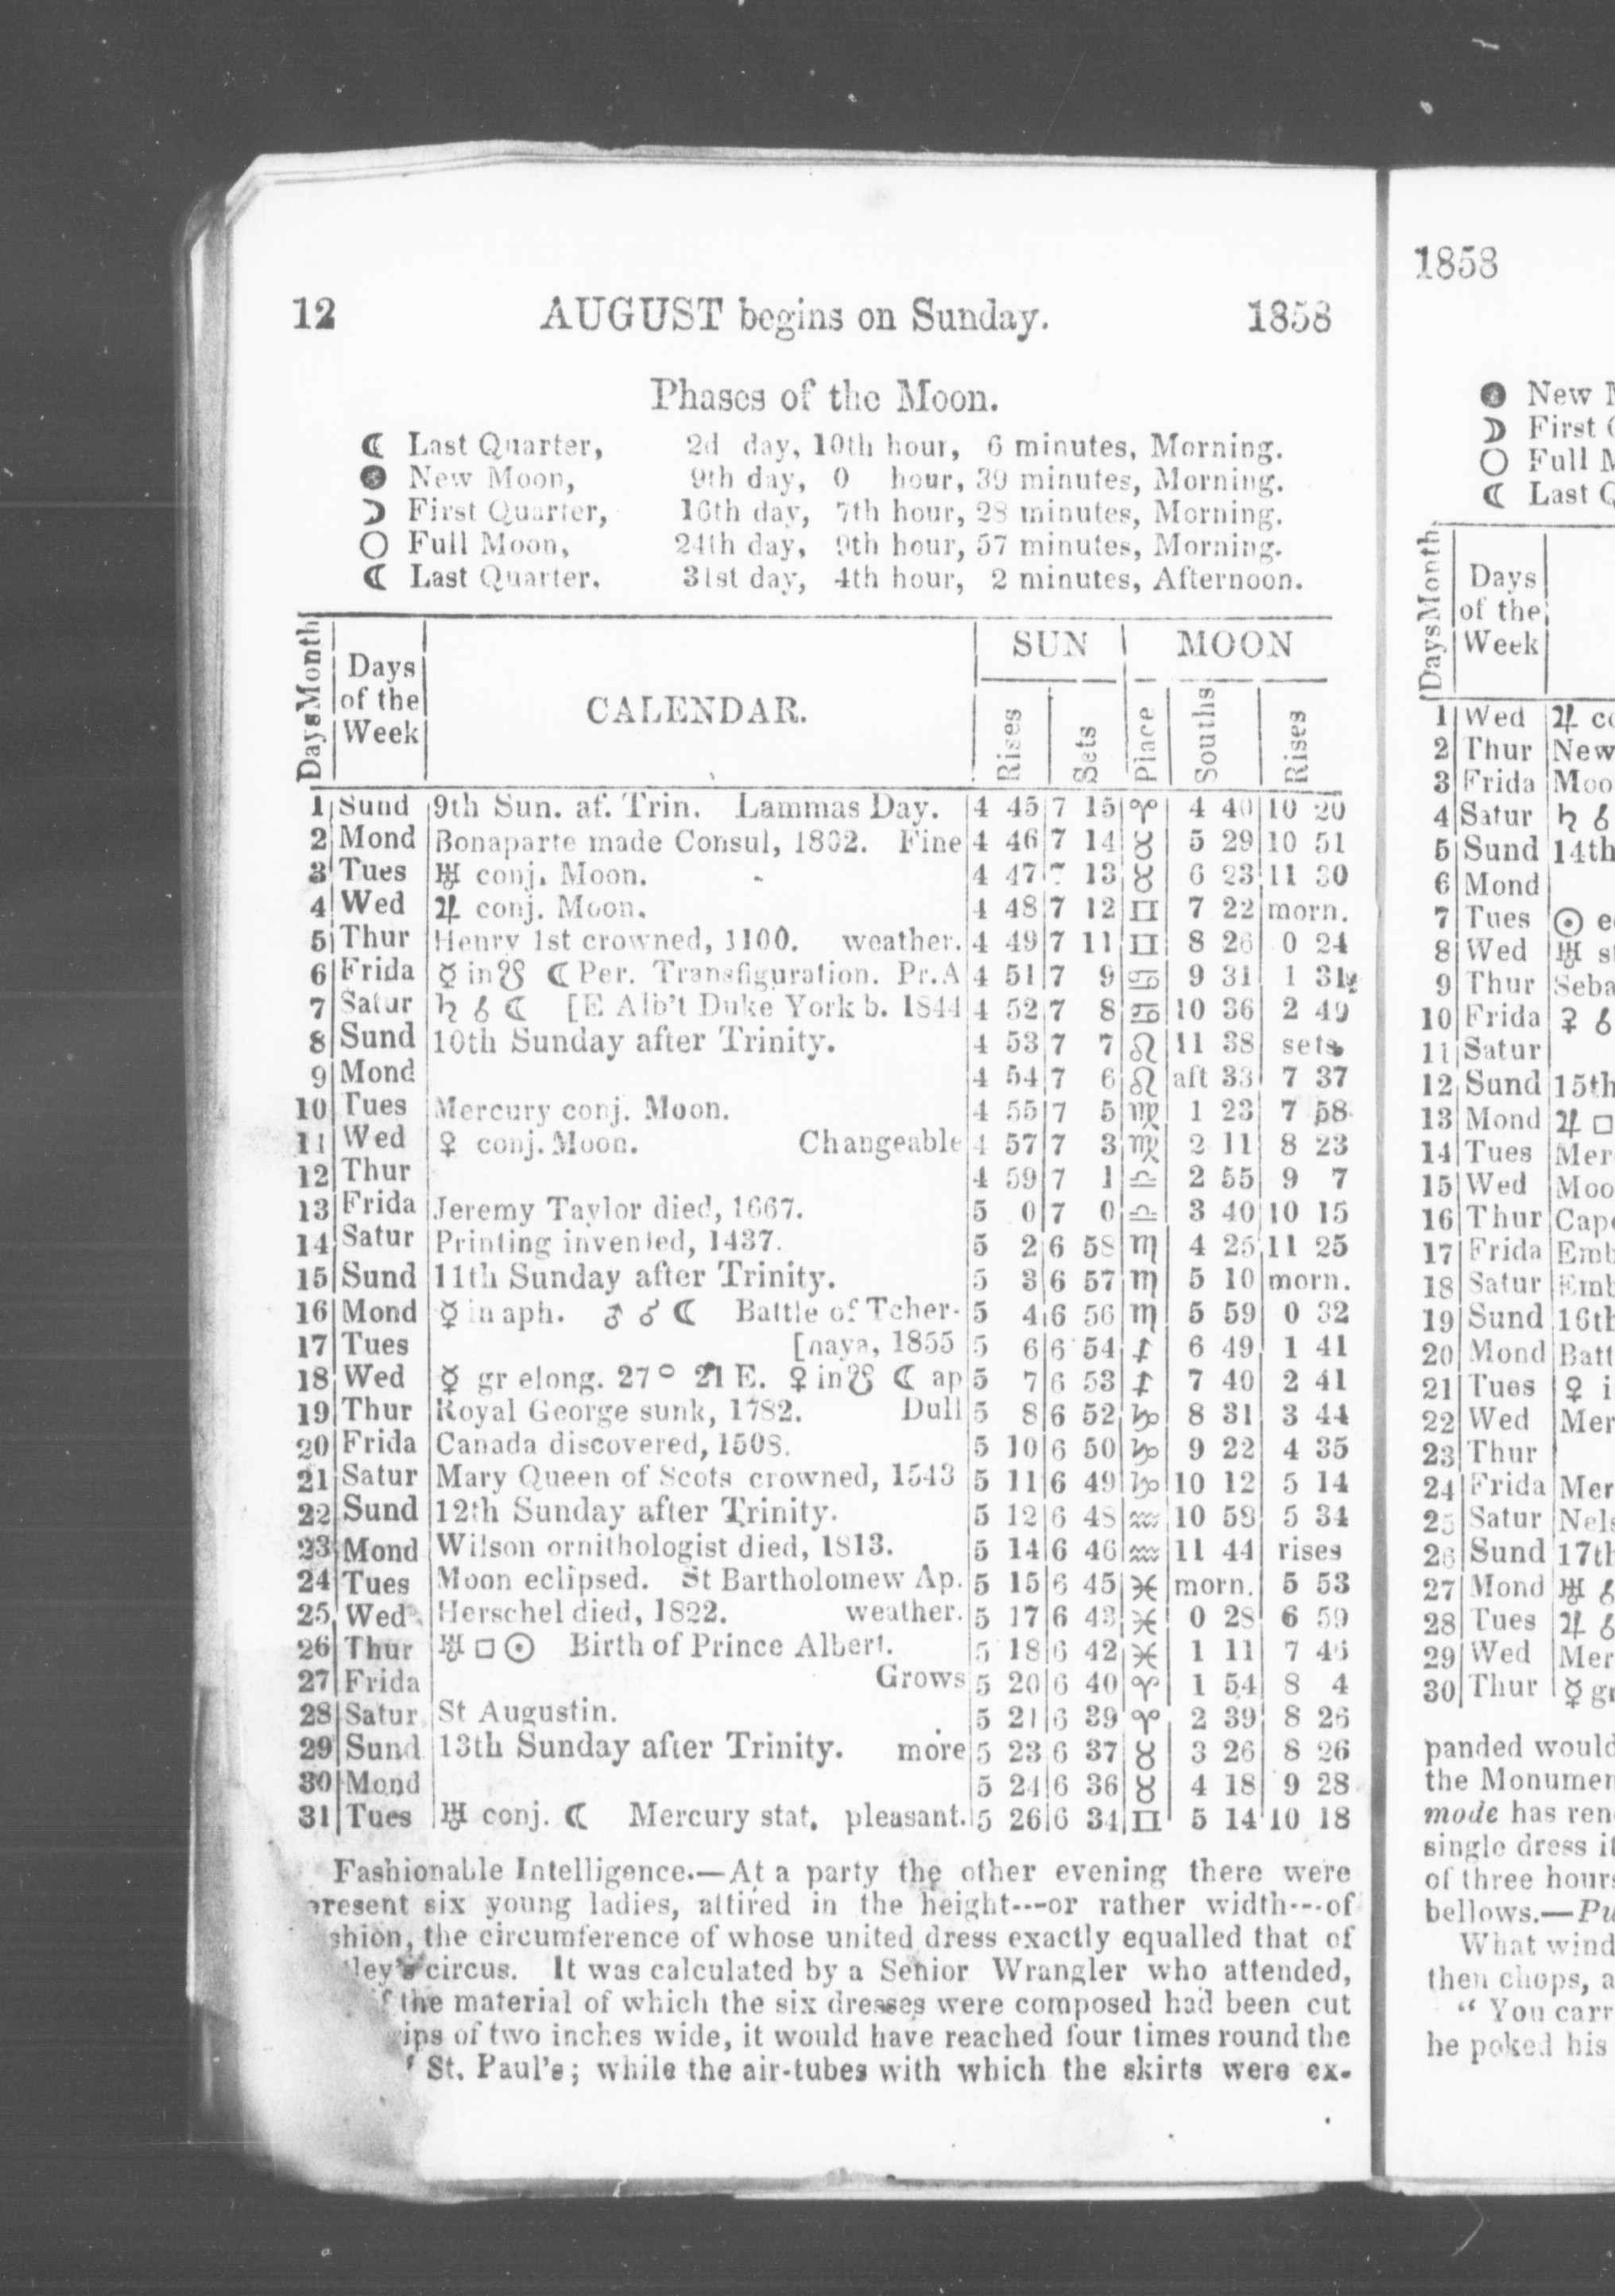 12 AUGUST begins on Sunday. 1858
Phases of the Moon.
☾ Last Quarter, 2d day, 10th hour, 6 minutes, Morning.
● New Moon, 9th day, 0 hour, 39 minutes, Morning.
☽ First Quarter, 16th day, 7th hour, 28 minutes, Morning.
○ Full Moon, 24th day, 9th hour, 57 minutes, Morning.
☾ Last Quarter, 31st day, 4th hour, 2 minutes, Afternoon.
DaysMonth Days of the Week CALENDAR. SUN MOON
Rises Sets Place Souths Rises
1 Sund 9th Sun. af. Trin. Lammas Day. 4 45 7 15 ♈ 4 40 10 20
2 Mond Bonaparte made Consul, 1802. Fine 4 46 7 14 ♉ 5 29 10 51
3 Tues ♅ conj. Moon. 4 47 7 13 ♉ 6 23 11 30
4 Wed ♃ conj. Moon. 4 48 7 12 ♊ 7 22 morn.
5 Thur Henry 1st crowned, 1100. weather. 4 49 7 11 ♊ 8 26 0 24
6 Frida ☿ in ☋ ☾ Per. Transfiguration. Pr. A 4 51 7 9 ♋ 9 31 1 31
7 Satur ♄ ☌ ☾ [E Alb't Duke York b. 1844 4 52 7 8 ♋ 10 36 2 49
8 Sund 10th Sunday after Trinity. 4 53 7 7 ♌ 11 38 sets
9 Mond 4 54 7 6 ♌ aft 33 7 37
10 Tues Mercury conj. Moon. 4 55 7 5 ♍ 1 23 7 58
11 Wed ♀ conj. Moon. Changeable 4 57 7 3 ♍ 2 11 8 23
12 Thur 4 59 7 1 ♎ 2 55 9 7
13 Frida Jeremy Taylor died, 1667. 5 0 7 0 ♎ 3 40 10 15
14 Satur Printing invented, 1437. 5 2 6 58 ♏ 4 25 11 25
15 Sund 11th Sunday after Trinity. 5 3 6 57 ♏ 5 10 morn.
16 Mond ☿ in aph. ♂ ☌ ☾ Battle of Tcher- 5 4 6 56 ♏ 5 59 0 32
17 Tues [naya, 1855 5 6 6 54 ♐ 6 49 1 41
18 Wed ☿ gr elong. 27° 21 E. ♀ in ☋ ☾ ap 5 7 6 53 ♐ 7 40 2 41
19 Thur Royal George sunk, 1782. Dull 5 8 6 52 ♑ 8 31 3 44
20 Frida Canada discovered, 1508. 5 10 6 50 ♑ 9 22 4 35
21 Satur Mary Queen of Scots crowned, 1543 5 11 6 49 ♑ 10 12 5 14
22 Sund 12th Sunday after Trinity. 5 12 6 48 ♒ 10 58 5 34
23 Mond Wilson ornithologist died, 1813. 5 14 6 46 ♒ 11 44 rises
24 Tues Moon eclipsed. St Bartholomew Ap. 5 15 6 45 ♓ morn. 5 53
25 Wed Herschel died, 1822. weather. 5 17 6 43 ♓ 0 28 6 59
26 Thur ♅ □ ☉ Birth of Prince Albert. 5 18 6 42 ♓ 1 11 7 46
27 Frida Grows 5 20 6 40 ♈ 1 54 8 4
28 Satur St Augustin. 5 21 6 39 ♈ 2 39 8 26
29 Sund 13th Sunday after Trinity. more 5 23 6 37 ♉ 3 26 8 26
30 Mond 5 24 6 36 ♉ 4 18 9 28
31 Tues ♅ conj. ☾ Mercury stat. pleasant. 5 26 6 34 ♊ 5 14 10 18
Fashionable Intelligence.—At a party the other evening there were
present six young ladies, attired in the height---or rather width---of
shion, the circumference of whose united dress exactly equalled that of
ley's circus. It was calculated by a Senior Wrangler who attended,
if the material of which the six dresses were composed had been cut
ips of two inches wide, it would have reached four times round the
St. Paul's; while the air-tubes with which the skirts were ex-
1858
● New M
☽ First Q
○ Full M
☾ Last Q
DaysMonth Days of the Week
1 Wed ♃ co
2 Thur New
3 Frida Moo
4 Satur ♄ ☌
5 Sund 14th
6 Mond
7 Tues ☉ e
8 Wed ♅ s
9 Thur Seba
10 Frida ♀ ☌
11 Satur
12 Sund 15th
13 Mond ♃ □
14 Tues Mer
15 Wed Moo
16 Thur Cape
17 Frida Emb
18 Satur Emb
19 Sund 16th
20 Mond Batt
21 Tues ♀ i
22 Wed Mer
23 Thur
24 Frida Mer
25 Satur Nels
26 Sund 17th
27 Mond ♅ ☌
28 Tues ♃ ☌
29 Wed Mer
30 Thur ☿ gr
panded would
the Monumen
mode has ren
single dress it
of three hours
bellows.—Pu
What wind
then chops, a
" You carr
he poked his